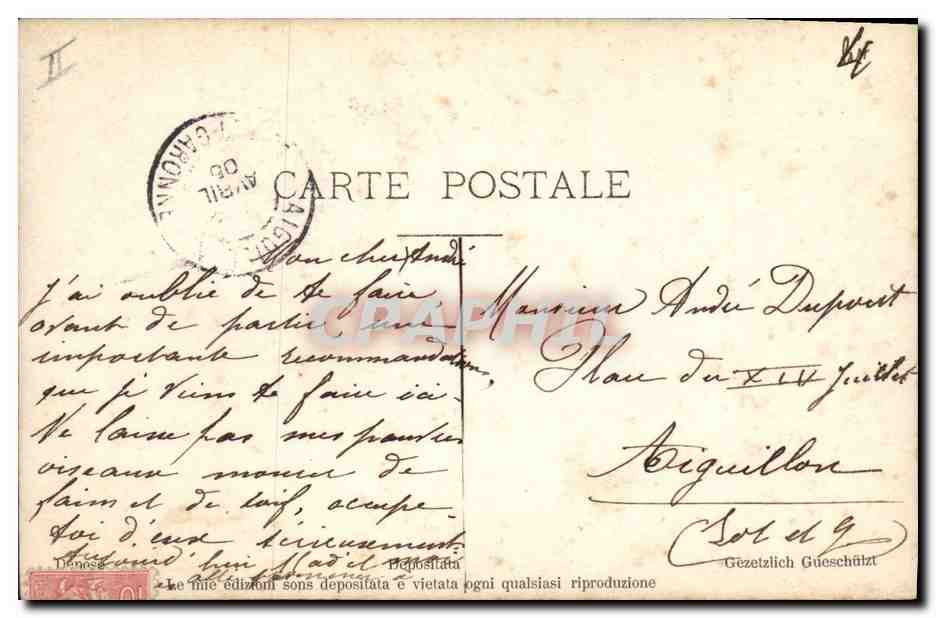 II
GARONNE
AVRIL
05
AIGUI
CARTE POSTALE
Mon cher André
J'ai oublié de te faire
avant de partir une
importante recommandation,
que je viens te faire ici.
Ne laisse pas mes pauvres
oiseaux mourir de
faim et de soif, occupe-
toi d'eux sérieusement
Monsieur André Dupont
Place du XIV Juillet
Aiguillon
(Lot et G)
CRAPHIL
Déposé
Depositata
Gezetzlich Gueschülzt
Le mie edizioni sons depositata e vietata ogni qualsiasi riproduzione
10